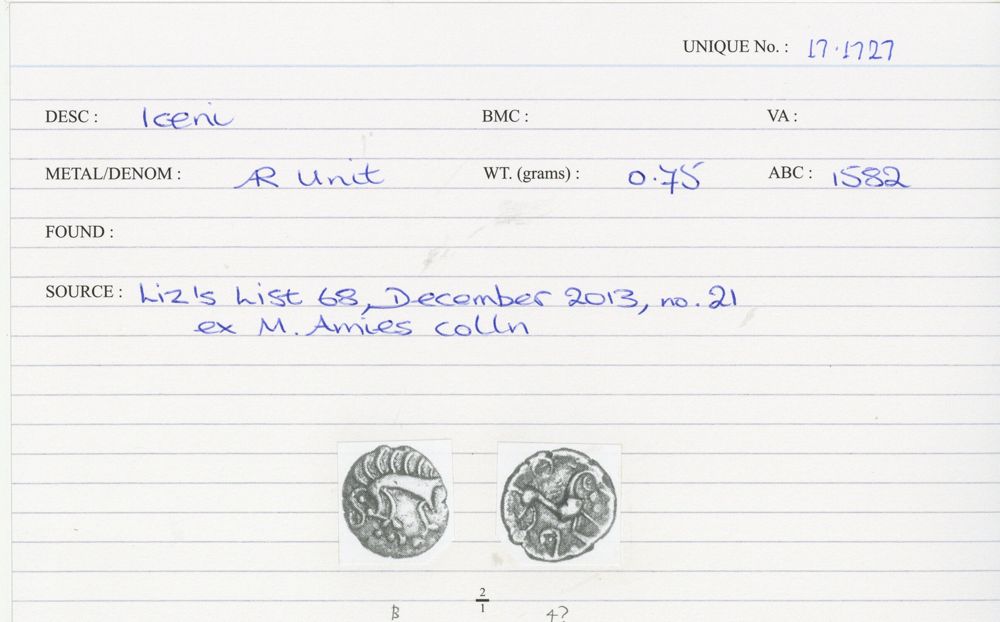 UNIQUE No. : 17.1727
DESC : Iceni BMC : VA :
METAL/DENOM : AR Unit WT. (grams) : 0.75 ABC : 1582
FOUND :
SOURCE : Liz's List 68, December 2013, no. 21
ex M. Amies colln
2
1
B 4?